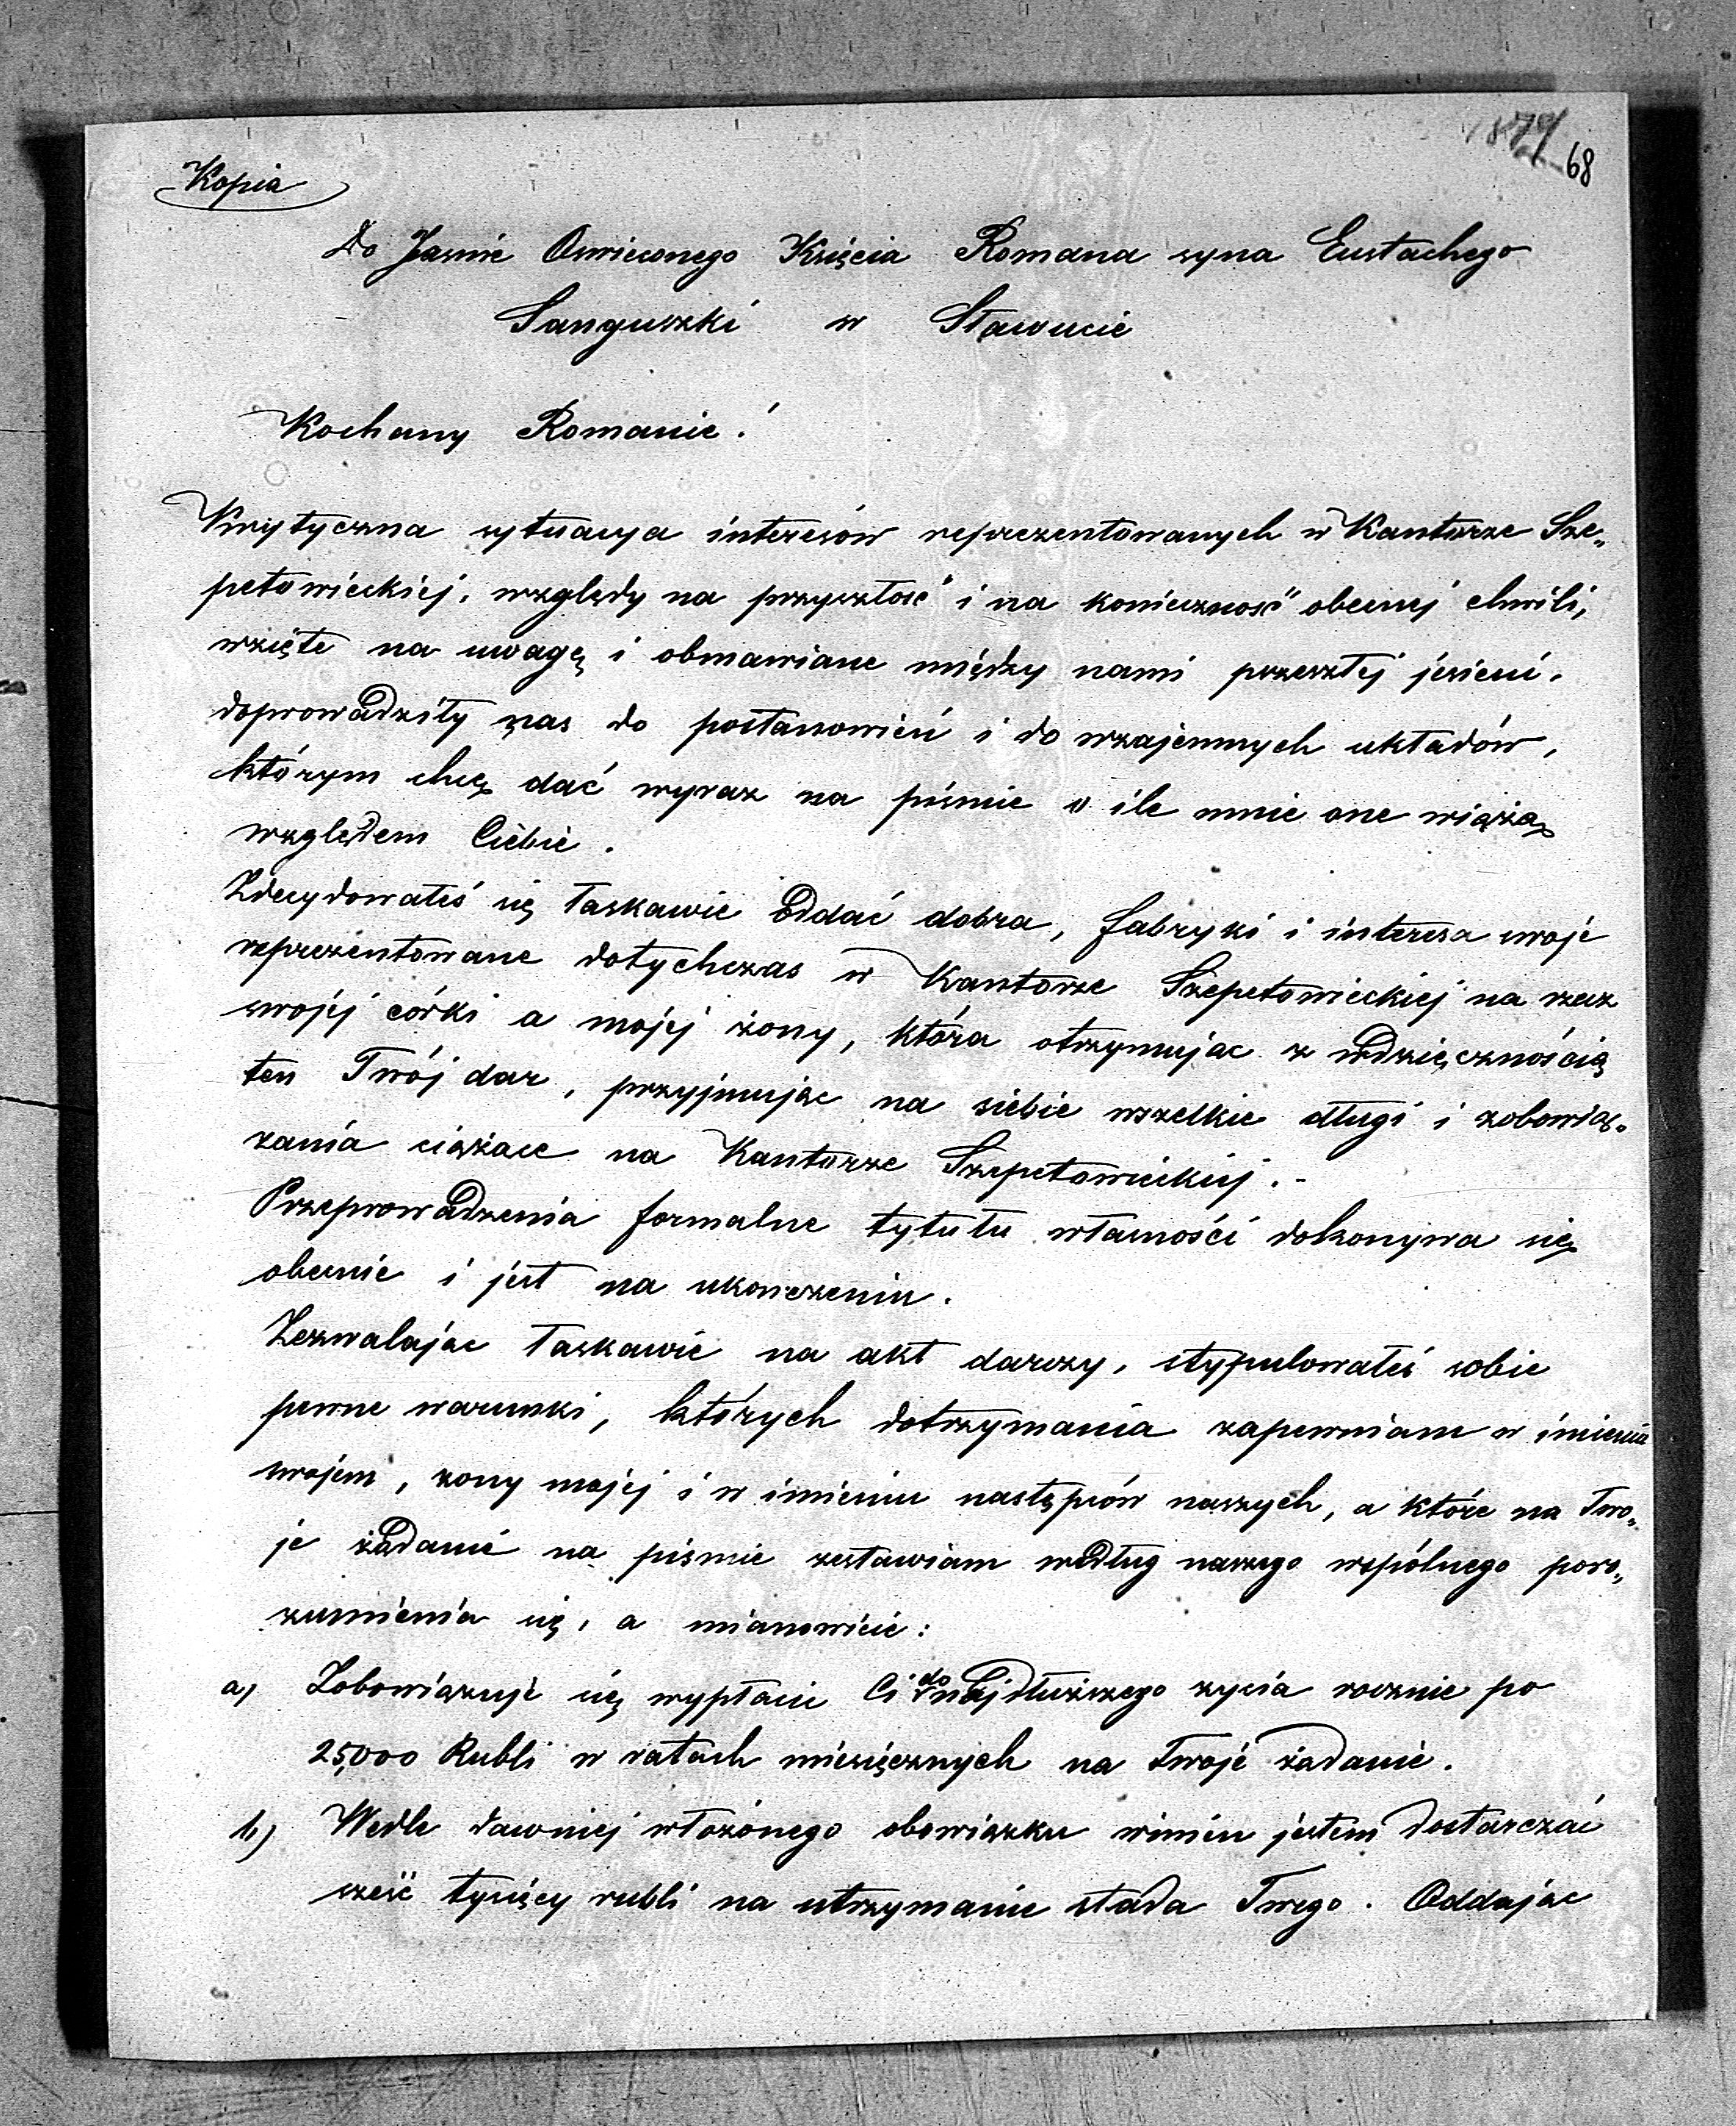 1879
68
Kopia
Do Jaśnie Oswieconego Księcia Romana syna Eustachego
Sanguszki w Sławucie
Kochany Romanie!
Krytyczna sytuacya interesów reprezentowanych w Kantorze Sze„
petowieckiej, względy na przyszłość i na konieczność obecnej chwili,
wzięte na uwagę i obmawiane między nami przeszłej jesieni,
doprowadziły nas do postanowień i do wzajemnych układów,
którym chcę dać wyraz na piśmie o ile mnie one wiążą
względem Ciebie.
Zdecydowałeś się łaskawie oddać dobra, fabryki i interesa swoje
reprezentowane dotychczas w Kantorze Szepetowieckiej na rzecz
swojéj córki a mojéj żony, która otrzymując z wdzięcznością
ten Twój dar, przyjmując na siebie wszelkie długi i zobowią-
zania ciążące na Kantorze Szepetowieckiej.-
Przeprowadzenia formalne tytułu własności dokonywa się
obecnie i jest na ukonczeniu.
Zezwalając łaskawie na akt darczy, stypulowałeś sobie
pewne warunki, których dotrzymania zapewniam w imieniu
swojem, zony mojéj i w imieniu następców naszych, a które na Two„
je żądanie na piśmie zestawiam według naszego wspólnego poro„
zumienia się, a mianowicie:
a) Zobowiązuję się wypłacić Ci do najdłuższego zycia rocznie po
25,000 Rubli w ratach miesięcznych na Twoje żadanie.
b) Wedle dawniej włożonego obowiązku winien jestem dostarczać
sześć tysięcy rubli na utrzymanie stada Twego. Oddając